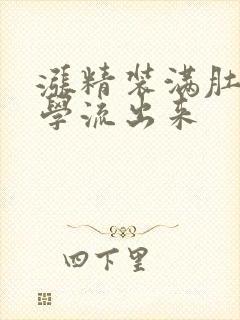 漲精装满肚
學流出来
四下里